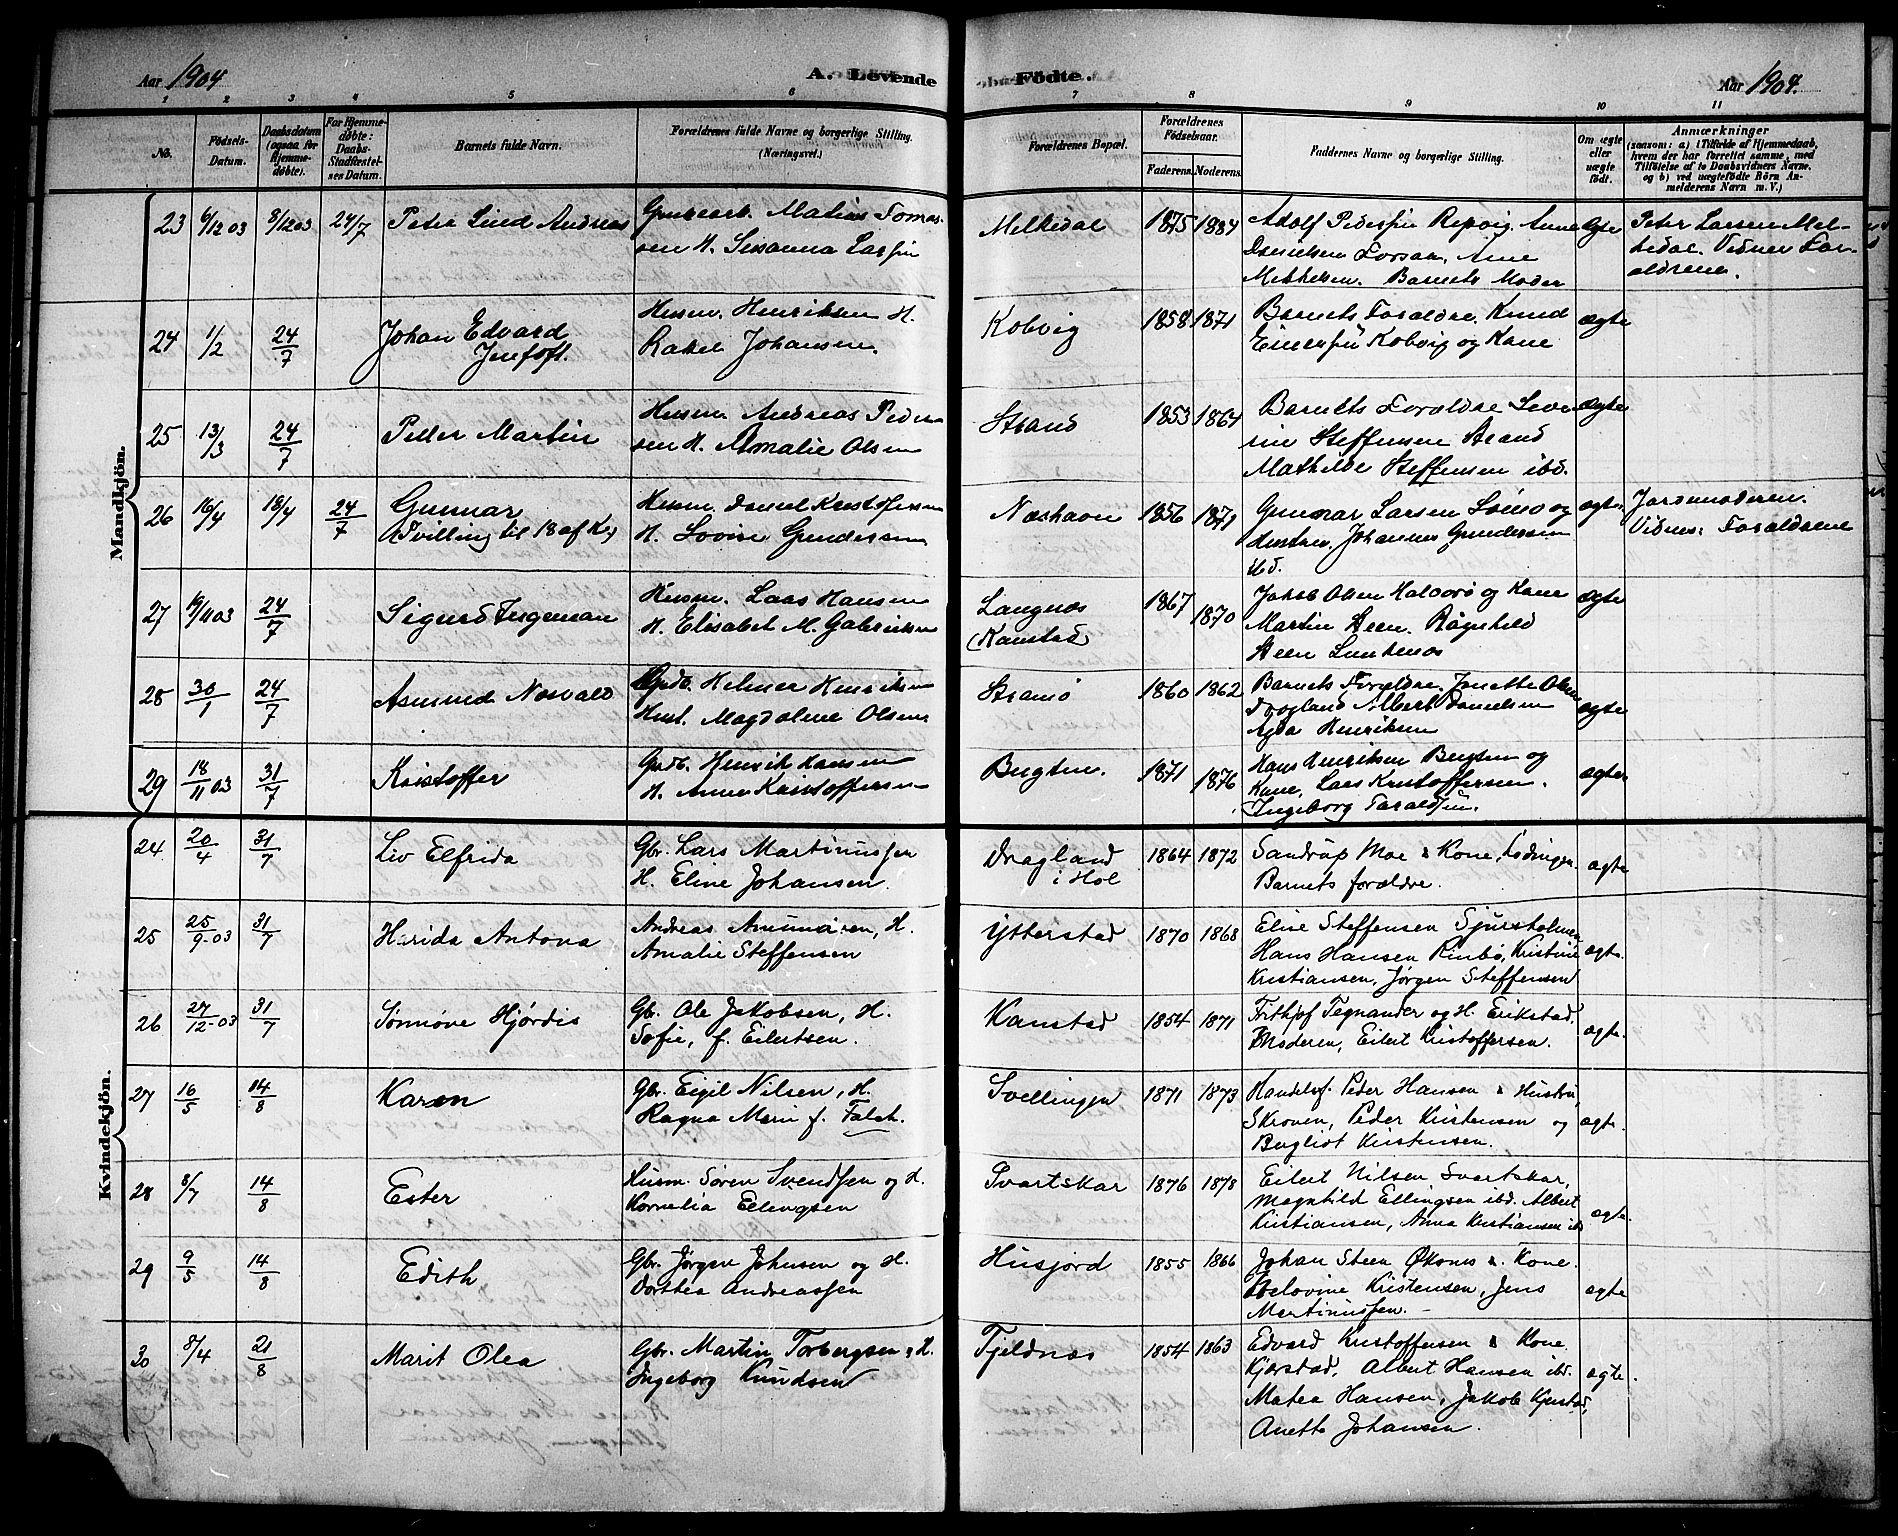 Aar 1904
A. Levende
Födte.
Aar 1904.
1 2 3 4 5 6 7 8 9 10 11
No.
Födsels-
Datum.
Daabsdatum
(ogsaa for
Hjemme-
døbte).
For Hjemme-
døbte:
Daabs-
Stadfæstel-
ses Datum.
Barnets fulde Navn.
Forældrenes fulde Navne og borgerlige Stilling.
(Næringsvei.)
Forældrenes Bopæl.
Forældrenes
Födselsaar.
Faderens. Moderens.
Faddernes Navne og borgerlige Stilling.
Om ægte
eller
uægte
födt.
Anmærkninger
(saasom: a) i Tilfælde af Hjemmedaab,
hvem der har forrettet samme, med
Tilföielse af to Daabsvidners Navne,
og b) ved uægtefödte Börn An-
melderens Navn m. V.)
Mandkjön.
23 6/12 03 8/12 03 24/7 Peter Lind Andreas
Matias Tomas-
sen H. Susanna Larsen
Melkedal 1875 1884
Adolf Pedersen Repvig. Anne
Forsaa, Arne
Mikkelsen. Barnets Moder
ægte
Peter Larsen Mel-
kedal. Vidner For-
ældrene.
24 1/2 24/7 Johan Edvard
Husm. Henriksen H.
Rakel Johansen.
Kobvig 1858 1871
Barnets Forældre. Knud
Kobvig og Kone
ægte
25 13/3 24/7 Peder Martin
Husm. Andreas Peder-
sen H. Amalie Olsen
Strand 1853 1864
Barnets Forældre Seve-
rine Steffensen Strand
Mathilde Steffensen ibd.
ægte
26 16/4 18/4 24/7 Gunnar
(Tvilling til 18 af Kv.)
Husm. Daniel Kristoffersen
H. Lovise Gundersen
Næshavn 1856 1871
Gunnar Larsen og
Hustru. Johannes Gundersen
ibd.
ægte.
Jordmoderen.
Vidner: Forældrene
27 19/11 03 24/7 Sigurd Ingeman
Husm. Laas Hansen
H. Elisabet M. Gabrielsen
Langnæs
(Kanstad)
1867 1870
Jakob Olsen og Kone
Martin Steen. Ragnhild
Steen
ægte
28 30/1 24/7 Asmund Norvald
Grdb. Helmer Henriksen
Hust. Magdalene Olsen
Stramø 1860 1862
Barnets Forældre. Jonette Olsen
Dragland Albert Danielsen
Henriksen
ægte
29 18/11 03 31/7 Kristoffer
Grdb. Henrik Hansen
H. Anna Kristoffersen
Bugten. 1871 1876
Hans Henriksen Bugten og
Kone, Lars Kristoffersen.
Ingeborg Taraldsen.
ægte
Kvindekjön.
24 20/4 31/7 Liv Elfrida
Gbr. Lars Martinussen
H. Eline Johansen.
Dragland
i Hol
1864 1872
Sandrup Moe & Kone, Lødingen.
Barnets forældre.
ægte
25 25/9-03 31/7 Harida Antona
Andreas Amundsen, H.
Amalie Steffensen
Ytterstad 1870 1868
Elise Steffensen Sjursholmen
Hans Hansen Rinbø, Kristine
Kristiansen, Jørgen Steffensen
ægte.
26 27/12-03 31/7 Sønnøve Hjørdis
Gbr. Ole Jakobsen, H.
Sofie, f. Eilertsen.
Kanstad 1854 1871
Frithjof Tegnander og H. Erikstad,
Moderen, Eilert Kristoffersen.
ægte.
27 16/5 14/8 Karen
Gbr. Eigil Nilsen, H.
Ragna Marie f. Falch.
Svellingen 1871 1873
Handelsf. Peder Hansen & Hustru,
Skroven, Peder Kristensen og
Bergliot Kristensen.
ægte.
28 8/7 14/8 Ester
Husm. Søren Svendsen og H.
Kornelia Ellingsen
Svartskar 1876 1878
Eilert Nilsen, Svartskar,
Magnhild Ellingsen ibd. Albert
Kristiansen, Anna Kristiansen ibd
ægte.
29 9/5 14/8 Edith
Gbr. Jørgen Johnsen og H.
Dorthea Andreassen
Husjord 1855 1866
Johan Steen Øksnes & Kone.
Helovine Kristensen, Jens
Martinussen.
ægte
30 8/4 21/8 Marit Olea
Gbr. Martin Torbergsen & H.
Ingeborg Knudsen
Tjeldnes 1854 1863
Edvard Kristoffersen & Kone
Kjerstad, Albert Hansen ibd.
Matea Hansen, Jakob Kjerstad,
Anette Johansen.
ægte.